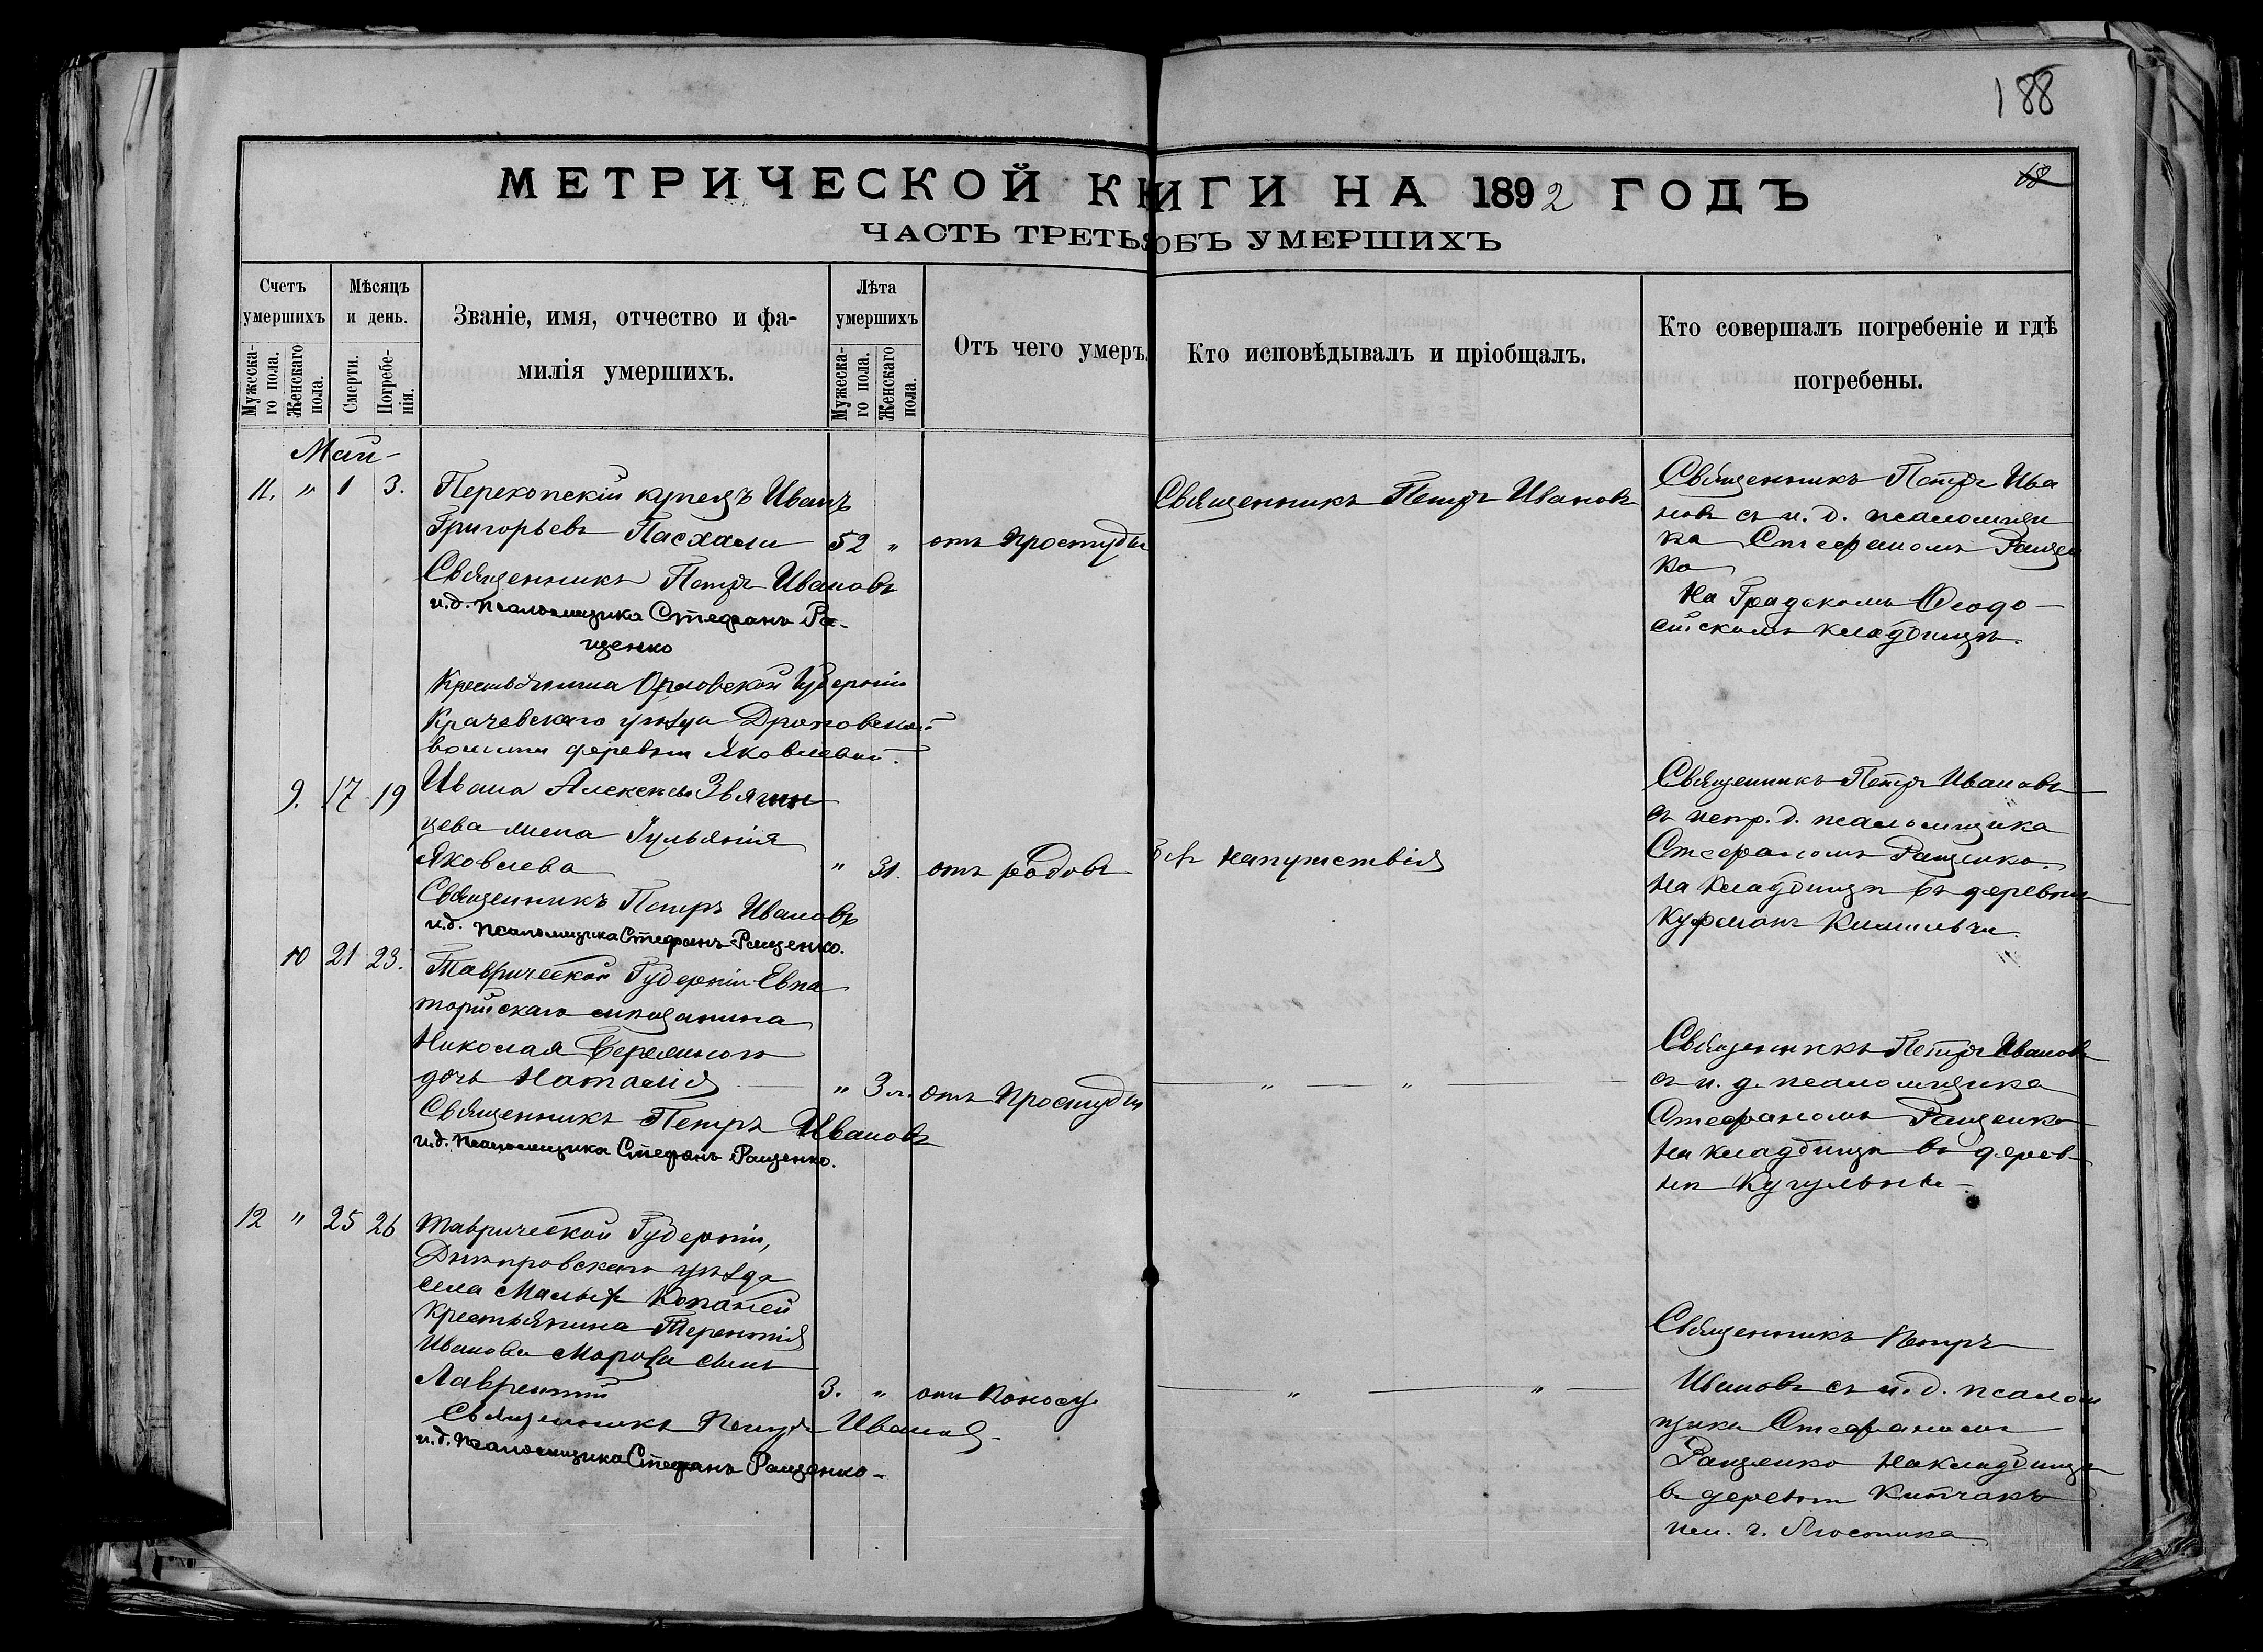 188
68
МЕТРИЧЕСКОЙ КНИГИ НА 1892 ГОДЪ
ЧАСТЬ ТРЕТЬЯ ОБЪ УМЕРШИХЪ
Счетъ умершихъ
Мужеска-го пола.
Женскаго пола.
Мѣсяцъ и день.
Смерти.
Погребе-нія.
Званіе, имя, отчество и фа-
милія умершихъ.
Лѣта умершихъ
Мужеска-го пола.
Женскаго пола.
Отъ чего умеръ.
Кто исповѣдывалъ и пріобщалъ.
Кто совершалъ погребеніе и гдѣ
погребены.
Май-
11. " 1 3.
Перекопскій купецъ Иванъ
Григорьевъ Пасхали 52 " отъ простуды
Священникъ Петръ Ивановъ
и.д. псаломщика Стефанъ Ра-
щенко
Священникъ Петръ Ивановъ
Священникъ Петръ Ива
новъ съ и. д. псаломщи
ка Стефаномъ Раще
ко
На Градскомъ Ѳеодо-
сійскомъ кладбищѣ.
Крестьянина Орловской Губерніи
Крачевскаго уѣзда Дроновской
волости деревни Яковлевой
9. 17 19
Ивана Алексѣева Звягин
цева жена Іульянія
Яковлева " 31. отъ родовъ
Священникъ Петръ Ивановъ
и.д. псаломщика Стефанъ Ращенко.
Безъ напутствія
Священникъ Петръ Ивановъ
съ испр. д. псаломщика
Стефаномъ Ращенко.
На кладбищѣ въ деревни
10 21 23.
Таврической Губерніи Евпа
торійскаго мѣщанина
Николая
дочь Наталія " 3 л. отъ простуды
Священникъ Петръ Ивановъ
и.д. псаломщика Стефанъ Ращенко.
" "
Священникъ Петръ Ивановъ
съ и. д. псаломщика
Стефаномъ Ращенко
На кладбищѣ въ дерев-
нѣ
12 " 25 26
Таврической Губерніи,
Днѣпровскаго уѣзда
села Малыхъ Копаней
Крестьянина Терентія
Иванова Мороза сынъ
Лаврентій 3. " отъ поносу
Священникъ Петръ Ивановъ
и.д. псаломщика Стефанъ Ращенко-
" "
Священникъ Петръ
Ивановъ съ и. д. псалом
щика Стефаномъ
Ращенко на кладбищѣ
въ деревни Китчакъ